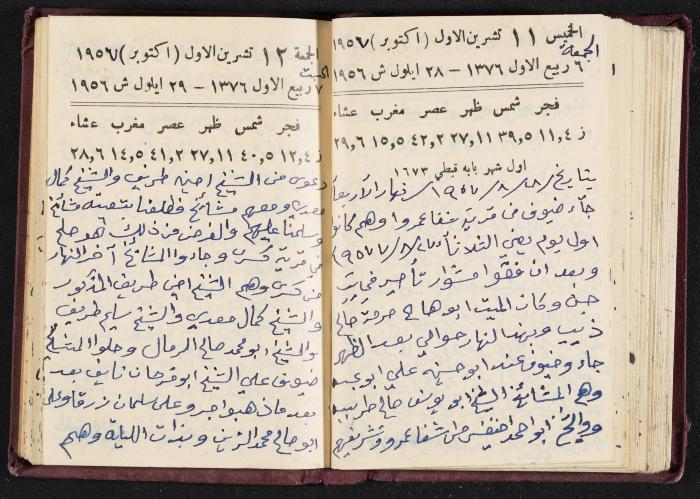 الخميس ١١ تشرين الاول (اكتوبر) ١٩٥٧
الجمعة
٦ ربيع الاول ١٣٧٦ – ٢٨ ايلول ش ١٩٥٦
فجر شمس ظهر عصر مغرب عشاء
ز ٤,١١ ٣٩,٥ ٢٧,١١ ٤٢,٢ ١٥,٥ ٢٩,٦
اول شهر بابه قبطي ١٦٧٣
بتاريخ ٢٨/٨/١٩٥٧ نهار الاربعا
جاء ضيوف من قرية شفاعمرو وهم كانوا
اول يوم يعني الثلاثاء ٢٧/٨/٩٥٧
وبعد ان فقوا مشوار تأجير في بيت
جن وكان الميت ابو هاني حرمة صالح
ذيب وبهذا النهار حوالي بعد الظهر
جاء وضيوف عند ابو حسن علي ابو
وهم المشائخ الشيخ ابو يوسف صالح
والشيخ ابو احمد من شفاعمرو
الجمعة ١٢ تشرين الاول (اكتوبر) ١٩٥٧
السبت
٧ ربيع الاول ١٣٧٦ – ٢٩ ايلول ش ١٩٥٦
فجر شمس ظهر عصر مغرب عشاء
ز ٤,١٢ ٤٠,٥ ٢٧,١١ ٤١,٢ ١٤,٥ ٢٨,٦
دعوى من الشيخ امين طريف والشيخ كمال
معدي ومعهم مشائخ وطلعنا بمعية مشائخ
وسلمنا عليهم والغرض من ذلك هو صلح
في قرية كسرى وجاءوا المشائخ آخر النهار
من كسرى وهم الشيخ امين طريف المذكور
والشيخ كمال معدي والشيخ سليم طريف
والشيخ ابو محمد صالح الرمال وحلوا المشائخ
ضيوف على الشيخ ابو فرحان نايف بعد
بعده هبوا جر وعلى سلمان زرقا وعلى
ابو صالح محمد الزين وبذات الليلة وهم